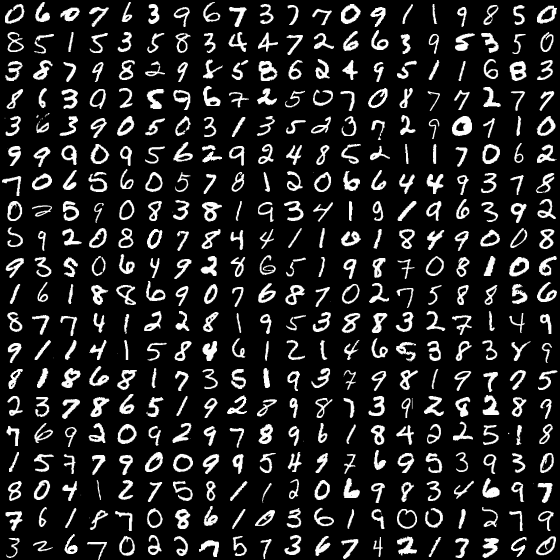 0 6 0 7 6 3 9 6 7 3 7 7 0 9 1 1 9 8 5 0
8 5 1 5 3 5 8 3 4 4 7 2 6 6 3 9 5 3 5 0
3 8 7 9 8 2 9 8 5 8 6 2 4 9 5 1 1 6 8 3
8 6 3 0 2 5 9 6 7 2 5 0 7 0 8 7 7 2 7 7
3 6 3 9 0 5 0 3 1 3 5 2 3 7 2 9 0 1 1 0
9 9 9 0 9 5 6 2 9 2 4 8 5 2 1 1 7 0 6 2
7 0 6 5 6 0 5 7 8 1 2 0 6 6 4 4 9 3 7 8
0 2 5 9 0 8 3 8 1 9 3 4 1 9 1 9 6 3 9 2
5 9 2 0 8 0 7 8 4 4 1 1 0 1 8 4 9 0 0 8
9 3 5 0 6 4 9 2 8 6 5 1 9 8 7 0 8 1 0 6
1 6 1 8 8 6 9 0 7 6 8 7 0 2 7 5 8 8 5 6
8 7 7 4 1 2 2 8 1 9 5 3 8 8 3 2 7 1 4 9
9 1 1 4 1 5 8 4 6 1 2 1 4 6 5 3 8 3 8 9
8 1 8 6 8 1 7 3 5 1 9 3 7 9 8 1 9 7 7 5
2 3 7 8 6 5 1 9 2 8 9 8 7 3 9 2 8 2 8 9
7 6 9 2 0 9 2 9 7 8 9 6 1 8 4 2 2 5 1 8
1 5 7 7 9 0 0 9 9 5 4 9 7 6 9 5 3 9 3 0
8 0 4 1 2 7 5 8 1 1 2 0 6 9 8 3 4 6 9 7
7 6 1 8 7 0 8 6 1 0 3 6 1 9 0 0 1 2 7 9
3 2 6 7 0 2 2 7 5 7 3 6 7 4 2 1 3 3 9 0